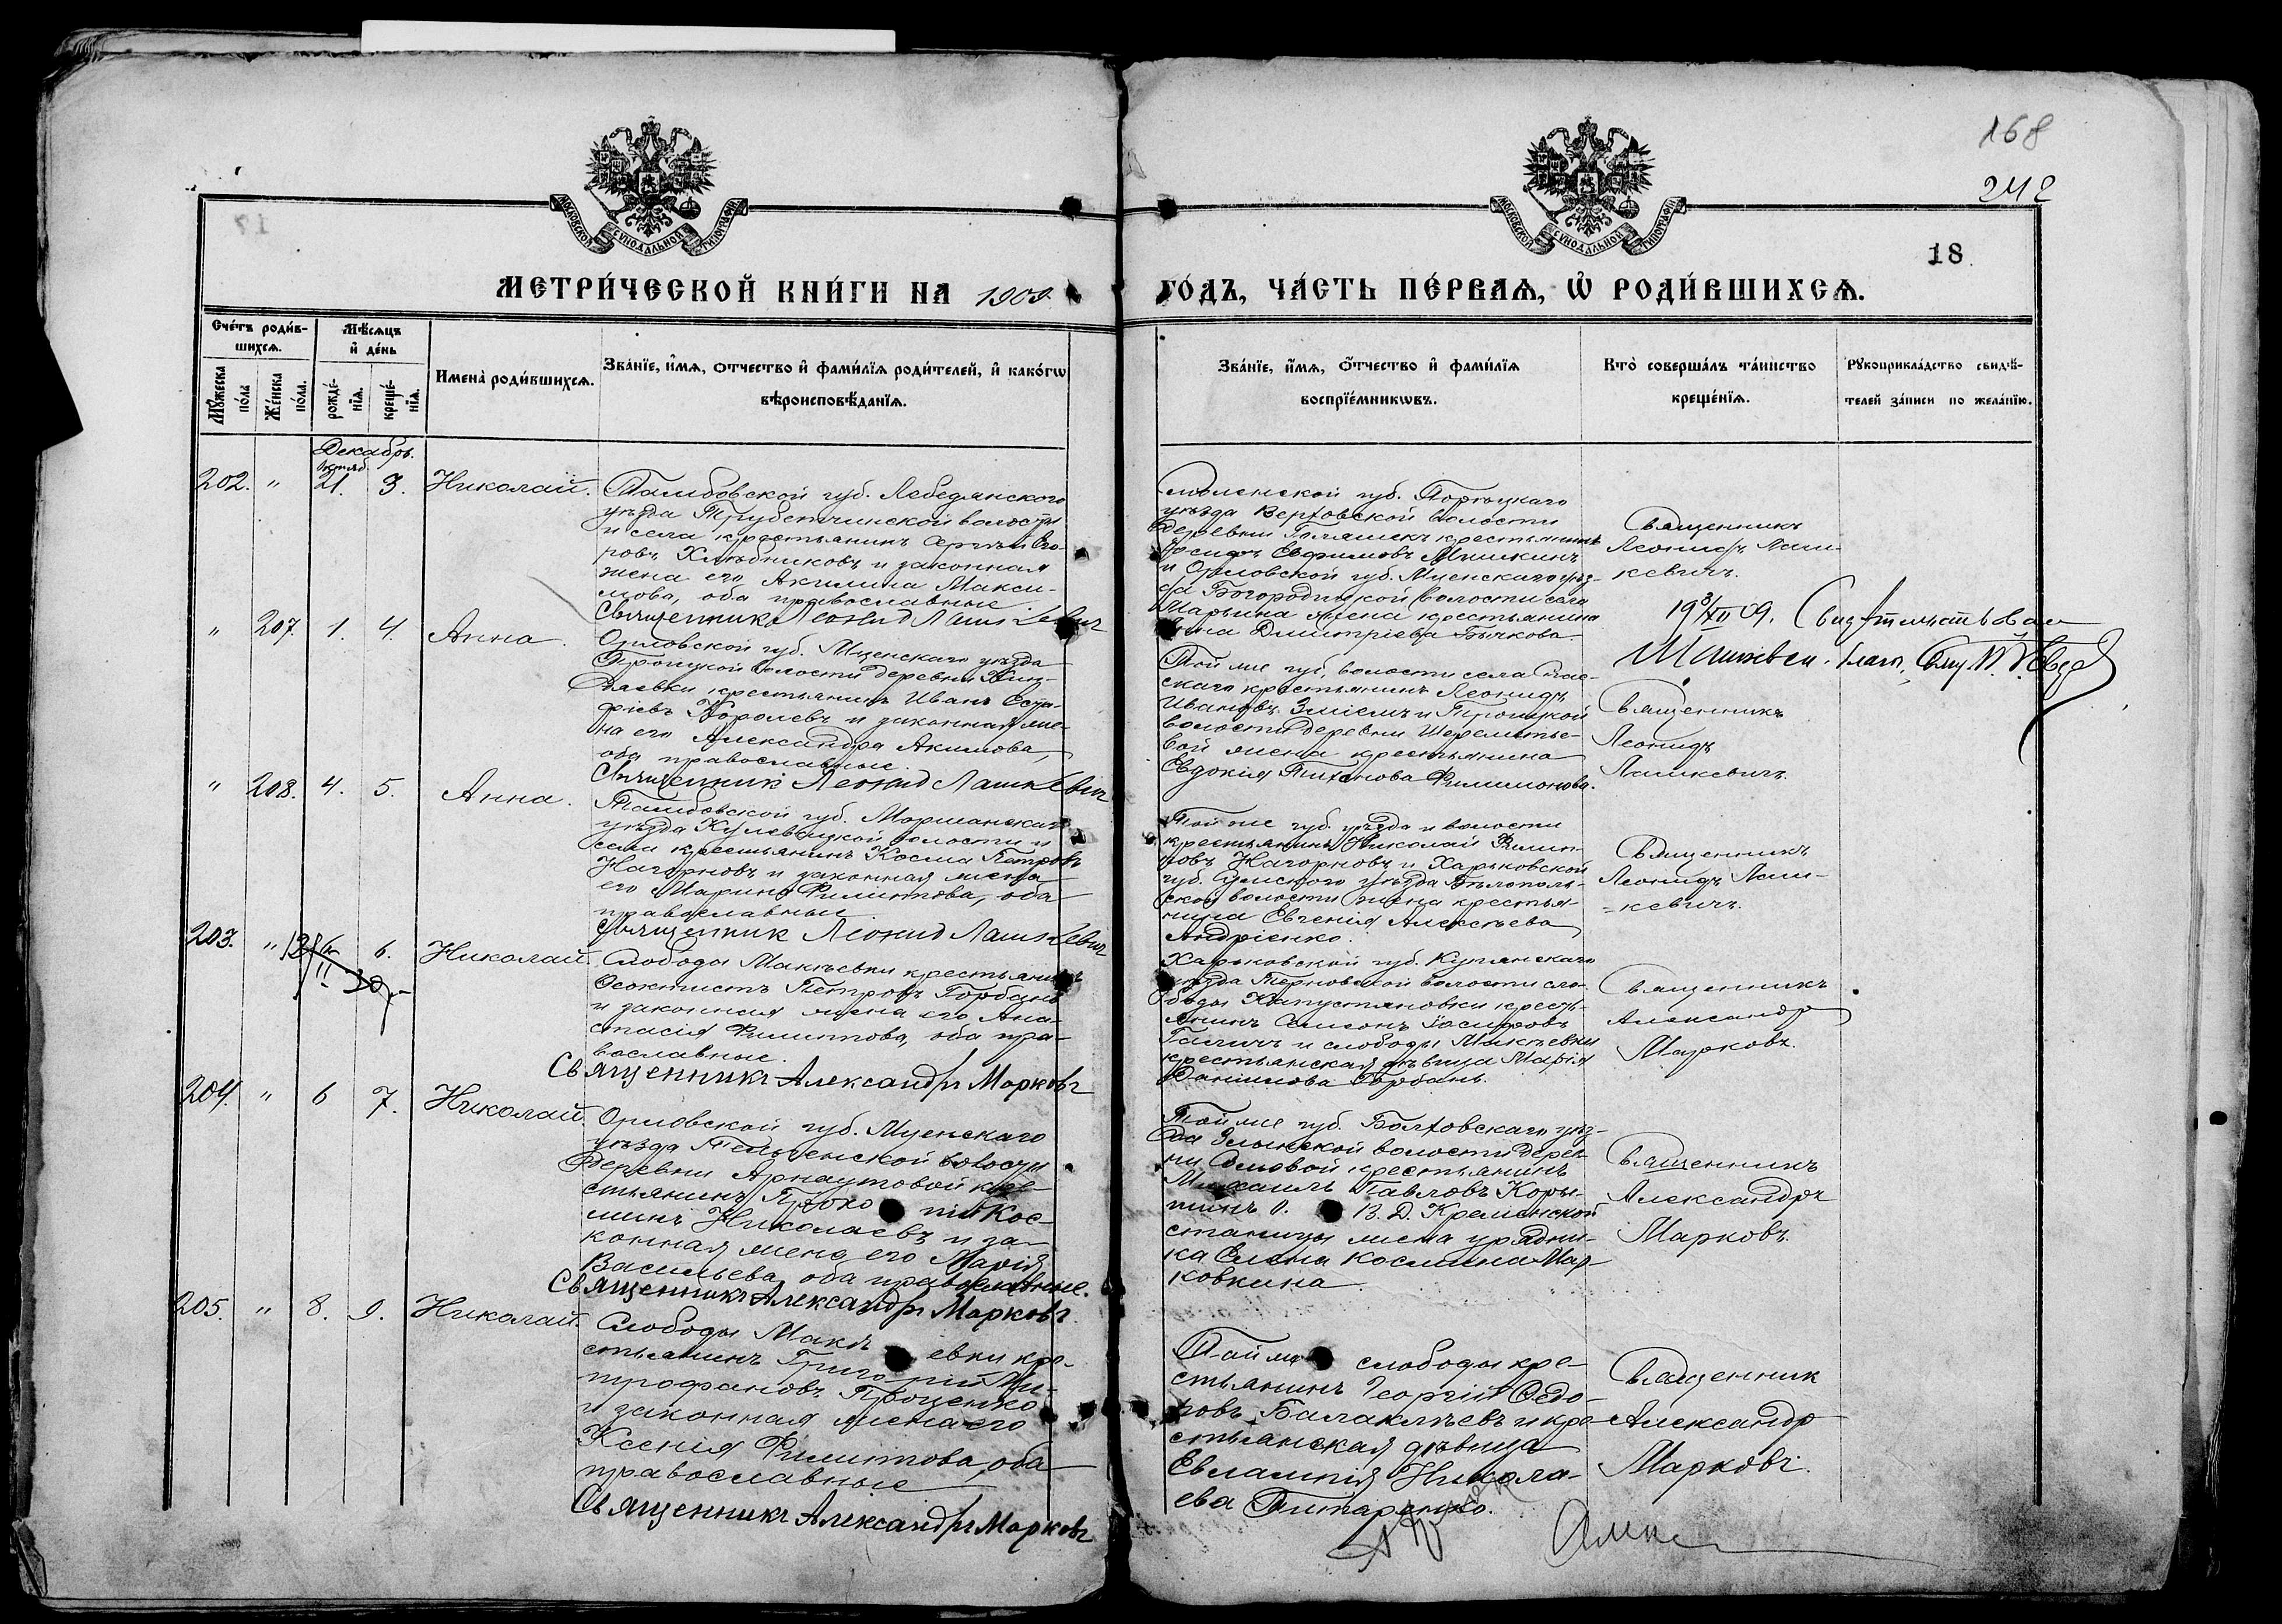 168
242
18
МОСКОВСКОЙ СѴНОДАЛЬНОЙ ТИПОГРАФІИ
МОСКОВСКОЙ СѴНОДАЛЬНОЙ ТИПОГРАФІИ
МЕТРИ́ЧЕСКОЙ КНИ́ГИ НА 1909
ГО́ДЪ, ЧА́СТЬ ПЕ́РВАѦ, Ѡ҆ РОДИ́ВШИХСѦ.
Сче́тъ роди́в-
шихсѧ.
Мꙋ́жеска
по́ла
Же́нска
по́ла.
Мѣ́сѧцъ
и҆ де́нь
рожде́-
нїѧ.
креще́-
нїѧ.
Имена̀ роди́вшихсѧ.
Зва́нїе, и҆́мѧ, ѻ҆́тчество и҆ фами́лїѧ роди́телей, и҆ како́гѡ
вѣроисповѣ́данїѧ.
Зва́нїе, и҆́мѧ, ѻ҆́тчество и҆ фами́лїѧ
воспрїе́мникѡвъ.
Кто̀ соверша́лъ та́инство
креще́нїѧ.
Рꙋкоприкла́дство свидѣ́-
телей за́писи по жела́нїю.
Декабрь.
202. " 21. 3. Николай.
Тамбовской губ. Лебедянского
уѣзда Трубетчинской волости
и села крестьянинъ Сергѣй Его-
ровъ Хлѣбниковъ и законная
жена его Акилина Макси-
мова, оба православные.
Священникъ Леонид Лашкевич
Смоленской губ.
уѣзда Верховской волости
деревни крестьянинъ
Евфимовъ Мишкинъ
и Орловской губ. Мценскаго уѣз-
да Богородицкой волости села
Марьина жена крестьянина
Анна Дмитріева Бычкова.
Священникъ
Леонидъ Лаш-
кевичъ.
19 3/XII 09. Свидѣтельствовал
" 207. 1. 4. Анна.
Орловской губ. Мценскаго уѣзда
Троицкой волости деревни
крестьянинъ Иванъ
Королевъ и законная же-
на его Александра Акимова,
оба православные.
Священник Леонид Лашкевич
Той же губ., волости села Спас-
скаго крестьянинъ Леонидъ
Ивановъ и Троицкой
волости деревни Шереметье-
вой жена крестьянина
Евдокія Филимонова.
Священникъ
Леонидъ
Лашкевичъ.
" 208. 4. 5. Анна.
Тамбовской губ. Моршанскаго
уѣзда волости и
села крестьянинъ Косма Петровъ
Нагорновъ и законная жена
его Марина Филиппова, оба
православные.
Священник Леонид Лашкевич
Той же губ. уѣзда и волости
крестьянинъ Николай Филип-
повъ Нагорновъ и Харьковской
губ. Сумского уѣзда Бѣлополь-
ской волости жена крестья-
нина Евгенія Алексѣева
Андріенко.
Священникъ
Леонидъ Лаш-
кевичъ.
203. " 6. Николай.
Слободы Макѣевки крестьянинъ
Ѳеоктистъ Петровъ Горбань
и законная жена его Ана-
стасія Филиппова, оба пра-
вославные.
Священникъ Александръ Марковъ
Харьковской губ. Купянскаго
уѣзда Терновской волости сло-
боды Капустяновки кресть-
янинъ
и слободы Макѣевки
крестьянская дѣвица Марія
Даніилова Горбань.
Священникъ
Александръ
Марковъ.
204. " 6 7. Николай.
Орловской губ. Мценскаго
уѣзда волости
деревни Арнаутовой кре-
стьянинъ Прокопій Кос-
минъ Николаевъ и за-
конная жена его Марія
Васильева, оба православные.
Священникъ Александръ Марковъ
Той же губ. Болховскаго уѣз-
да волости дерев-
ни крестьянинъ
Михаилъ Павловъ Коры-
В. Д. Кременской
станицы жена урядни-
ка Елена Космина Мар-
ковкина
Священникъ
Александръ
Марковъ.
205. " 8. 9. Николай.
Слободы Макѣевки кре-
стьянинъ Григорій Ми-
трофановъ Проценко
и законная жена его
Ксенія Филиппова, оба
православные
Священникъ Александръ Марковъ
Той же слободы кре-
стьянинъ Георгій Ѳедо-
ровъ Балаклѣевъ и кре-
стьянская дѣвица
Евлампія Никола-
ева Титаренко.
Священник
Александр
Марковъ.